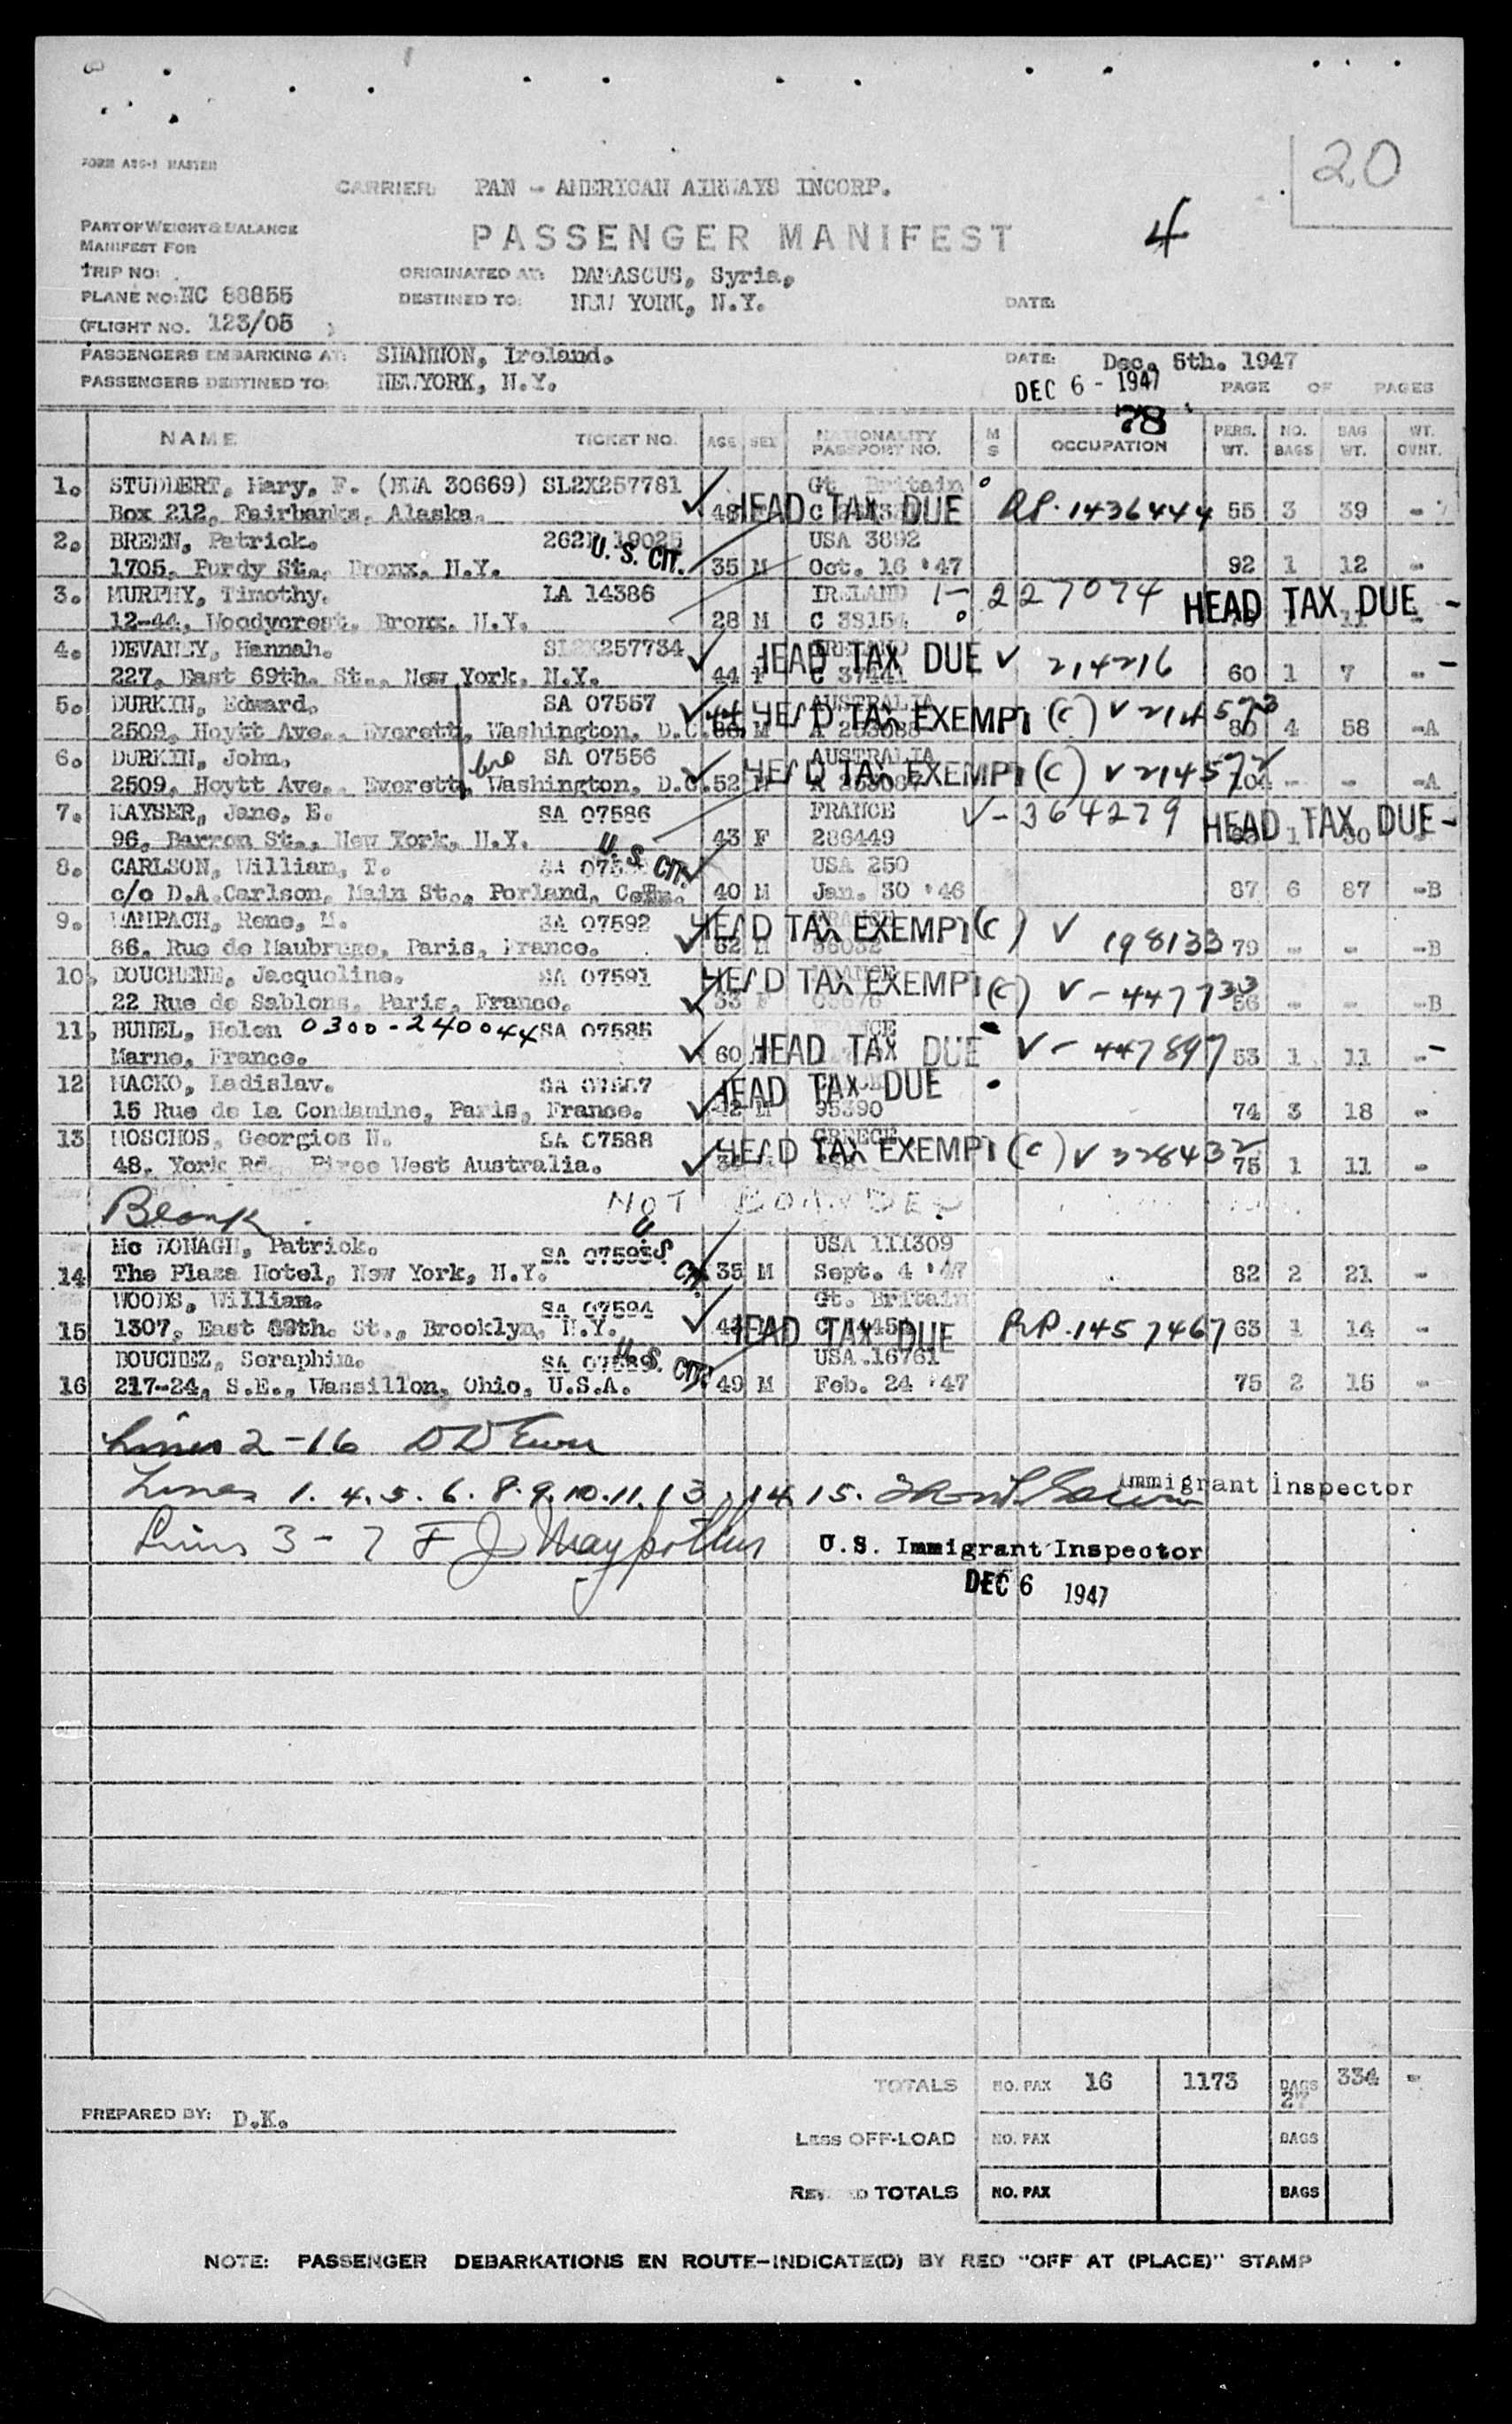 20
FORM ASG-1 MASTER
CARRIER: PAN - AMERICAN AIRWAYS INCORP.
PART OF WEIGHT & BALANCE
MANIFEST FOR
PASSENGER MANIFEST
4
TRIP NO:
ORIGINATED AT: DAMASCUS, Syria,
PLANE NO: NC 88855
DESTINED TO: NEW YORK, N.Y.
DATE:
(FLIGHT NO. 123/05 )
PASSENGERS EMBARKING AT: SHANNON, Ireland.
DATE: Dec. 5th. 1947
PASSENGERS DESTINED TO: NEWYORK, N.Y.
DEC 6 - 1947
PAGE OF PAGES
78
NAME TICKET NO. AGE SEX NATIONALITY PASSPORT NO. M S OCCUPATION PERS. WT. NO. BAGS BAG WT. WT. OVNT.
1. STUDDERT, Mary, F. (BWA 30669) SL2X257781 Gt. Britain
Box 212, Fairbanks, Alaska. 48 HEAD TAX DUE RP. 1436444 55 3 39 -
2. BREEN, Patrick. 262 19025 USA 3892
1705, Purdy St., Bronx, N.Y. U. S. CIT. 35 M Oct. 16 '47 92 1 12 -
3. MURPHY, Timothy. LA 14386 IRELAND 1- 227074 HEAD TAX DUE -
12-44, Woodycrest, Bronx. N.Y. 28 M C 38154 11
4. DEVANEY, Hannah. SL2X257734 HEAD TAX DUE V 214216
227, East 69th. St., New York, N.Y. 44 F C 37441 60 1 7 -
5. DURKIN, Edward. SA 07557 AUSTRALIA HEAD TAX EXEMPT (C) V 214573
2509, Hoytt Ave., Everett, Washington, D.C. M 4 58 -A
bro
6. DURKIN, John. SA 07556 AUSTRALIA HEAD TAX EXEMPT (C) V 214572
2509, Hoytt Ave. Everett, Washington, D.C. 52 M 104 - - -A
7. KAYSER, Jane, E. SA 07586 FRANCE V-364279 HEAD TAX DUE -
96, Barron St., New York, N.Y. 43 F 286449 1 30
8. CARLSON, William, T. U. S. CIT. USA 250
c/o D.A.Carlson, Main St., Porland, Conn. 40 M Jan. 30 '46 87 6 87 -B
9. WAMPACH, Rene, M. SA 07592 HEAD TAX EXEMPT (C) V 198133
86, Rue de Maubruge, Paris, France. 62 M 56032 79 - - -B
10. DOUCHENE, Jacqueline. SA 07591 HEAD TAX EXEMPT (C) V-447733
22 Rue de Sablons, Paris, France. 33 F 56 - - -B
11. BUHEL, Helen 0300-240044 SA 07585
Marne, France. 60 HEAD TAX DUE V-447897 53 1 11 -
12 MACKO, Ladislav. SA 07587 HEAD TAX DUE
15 Rue de La Condamine, Paris, France. 42 M 95390 74 3 18 -
13 MOSCHOS, Georgios N. SA 07588 GREECE HEAD TAX EXEMPT (C) V 328432
48, York Rd. West Australia. 75 1 11 -
Blank. NOT BOARDED
Mc DONAGH, Patrick. SA 07595 U. S. CIT. USA 111309
14 The Plaza Hotel, New York, N.Y. 35 M Sept. 4 '47 82 2 21 -
WOODS, William. SA 07594 Gt. Britain
15 1307, East 39th. St., Brooklyn, N.Y. HEAD TAX DUE RP. 1457467 63 1 14 -
BOUCHEZ, Seraphim. SA 07589 U. S. CIT. USA.16761
16 217-24, S.E., Wassillon, Ohio, U.S.A. 49 M Feb. 24 '47 75 2 15 -
Lines 2-16
Lines 1. 4. 5. 6. 8. 9. 10. 11. 13. 14. 15. Immigrant Inspector
Lines 3-7 F J
U.S. Immigrant Inspector
DEC 6 1947
TOTALS NO. PAX 16 1173 BAGS 27 334 -
PREPARED BY: D.K.
Less OFF-LOAD NO. PAX BAGS
REVISED TOTALS NO. PAX BAGS
NOTE: PASSENGER DEBARKATIONS EN ROUTE-INDICATE(D) BY RED "OFF AT (PLACE)" STAMP